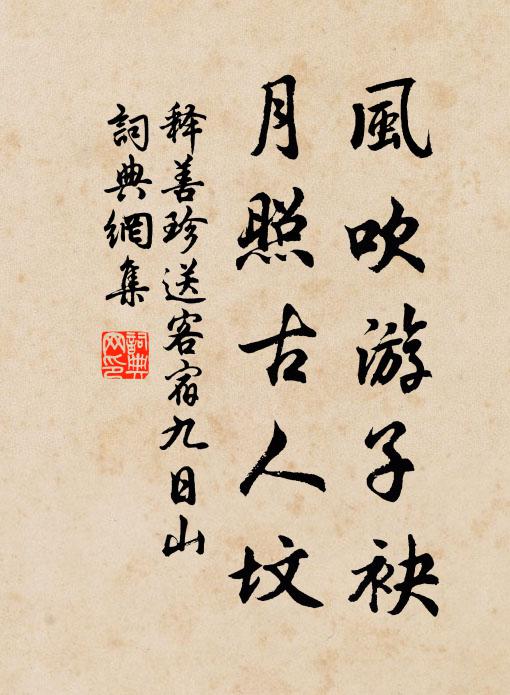 風吹游子袂
月照古人坟
释善珍送客宿九日山
詞典網集
詞典网印